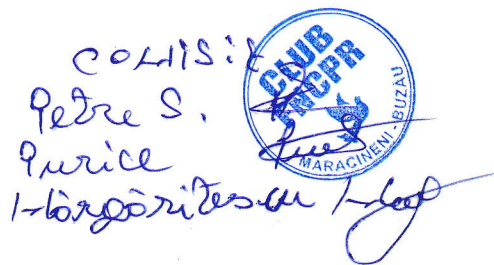 COMISIE
Petre S.
Purice
Mărgăritescu
CLUB
FNCPR
MARACINENI - BUZĂU